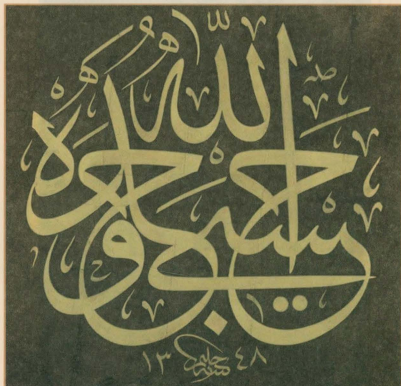 حسبي الله وحده
حليم
١٣٤٨